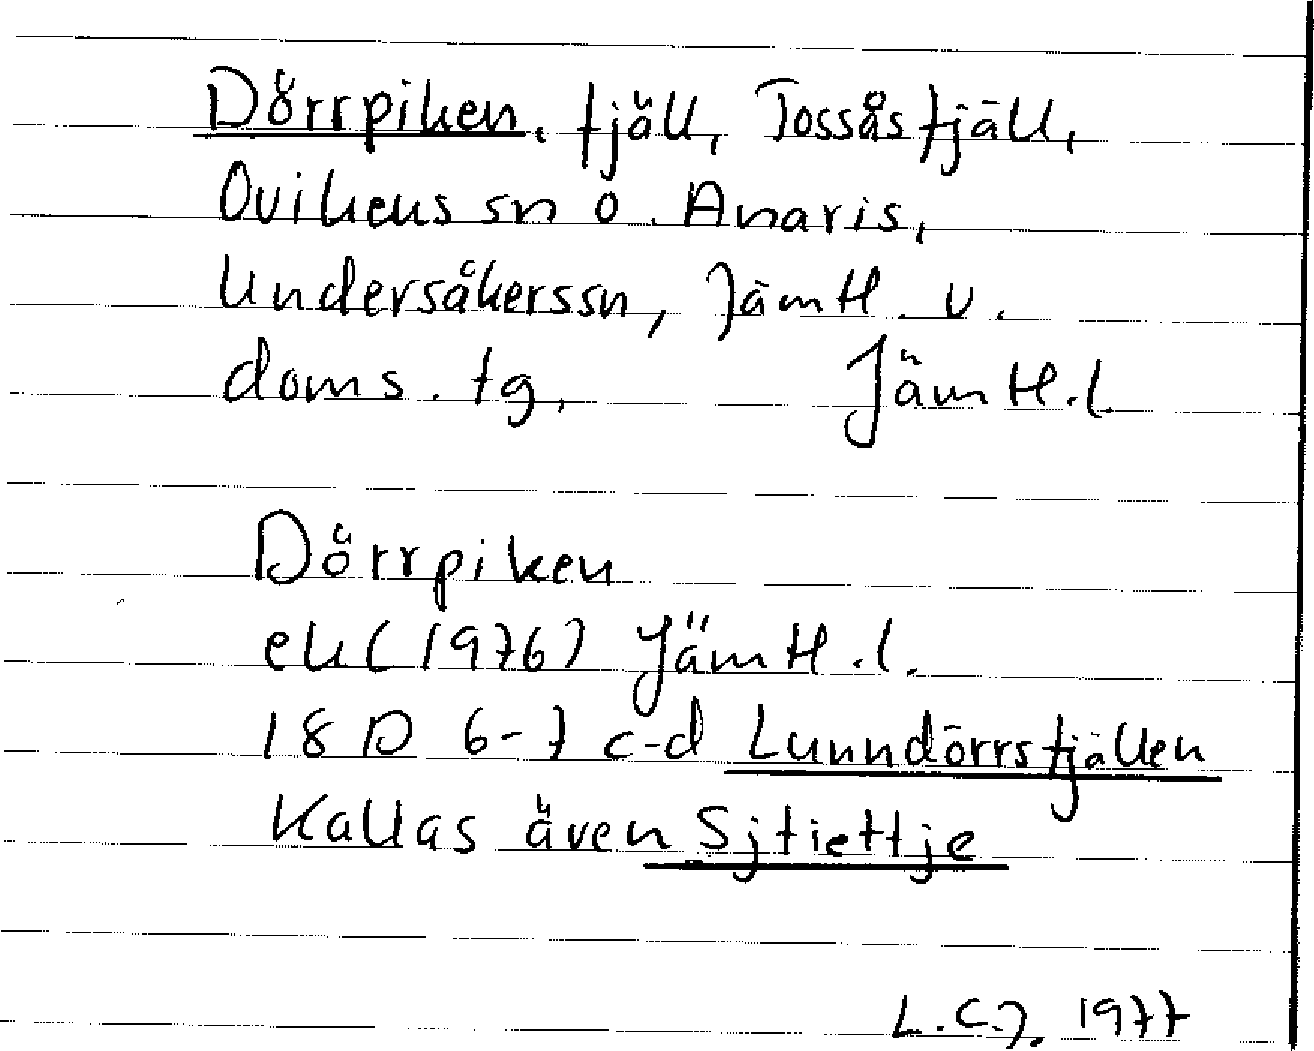 Dörrpiken, fjäll, Tossåsfjäll,
Ovikens sn o. Anaris,
Undersåkerssn, Jämtl. v.
doms. tg, Jämtl.l.
Dörrpiken
ek (1976) Jämtl.l.
18 D 6-7 c-d Lunndörrsfjällen
Kallas även Sjtiettje
L.C.J. 1977